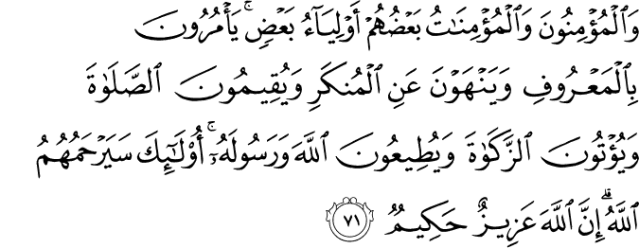 وَٱلْمُؤْمِنُونَ وَٱلْمُؤْمِنَـٰتُ بَعْضُهُمْ أَوْلِيَآءُ بَعْضٍ ۚ يَأْمُرُونَ
بِٱلْمَعْرُوفِ وَيَنْهَوْنَ عَنِ ٱلْمُنكَرِ وَيُقِيمُونَ ٱلصَّلَوٰةَ
وَيُؤْتُونَ ٱلزَّكَوٰةَ وَيُطِيعُونَ ٱللَّهَ وَرَسُولَهُۥٓ ۚ أُو۟لَـٰٓئِكَ سَيَرْحَمُهُمُ
ٱللَّهُ ۗ إِنَّ ٱللَّهَ عَزِيزٌ حَكِيمٌ ٧١